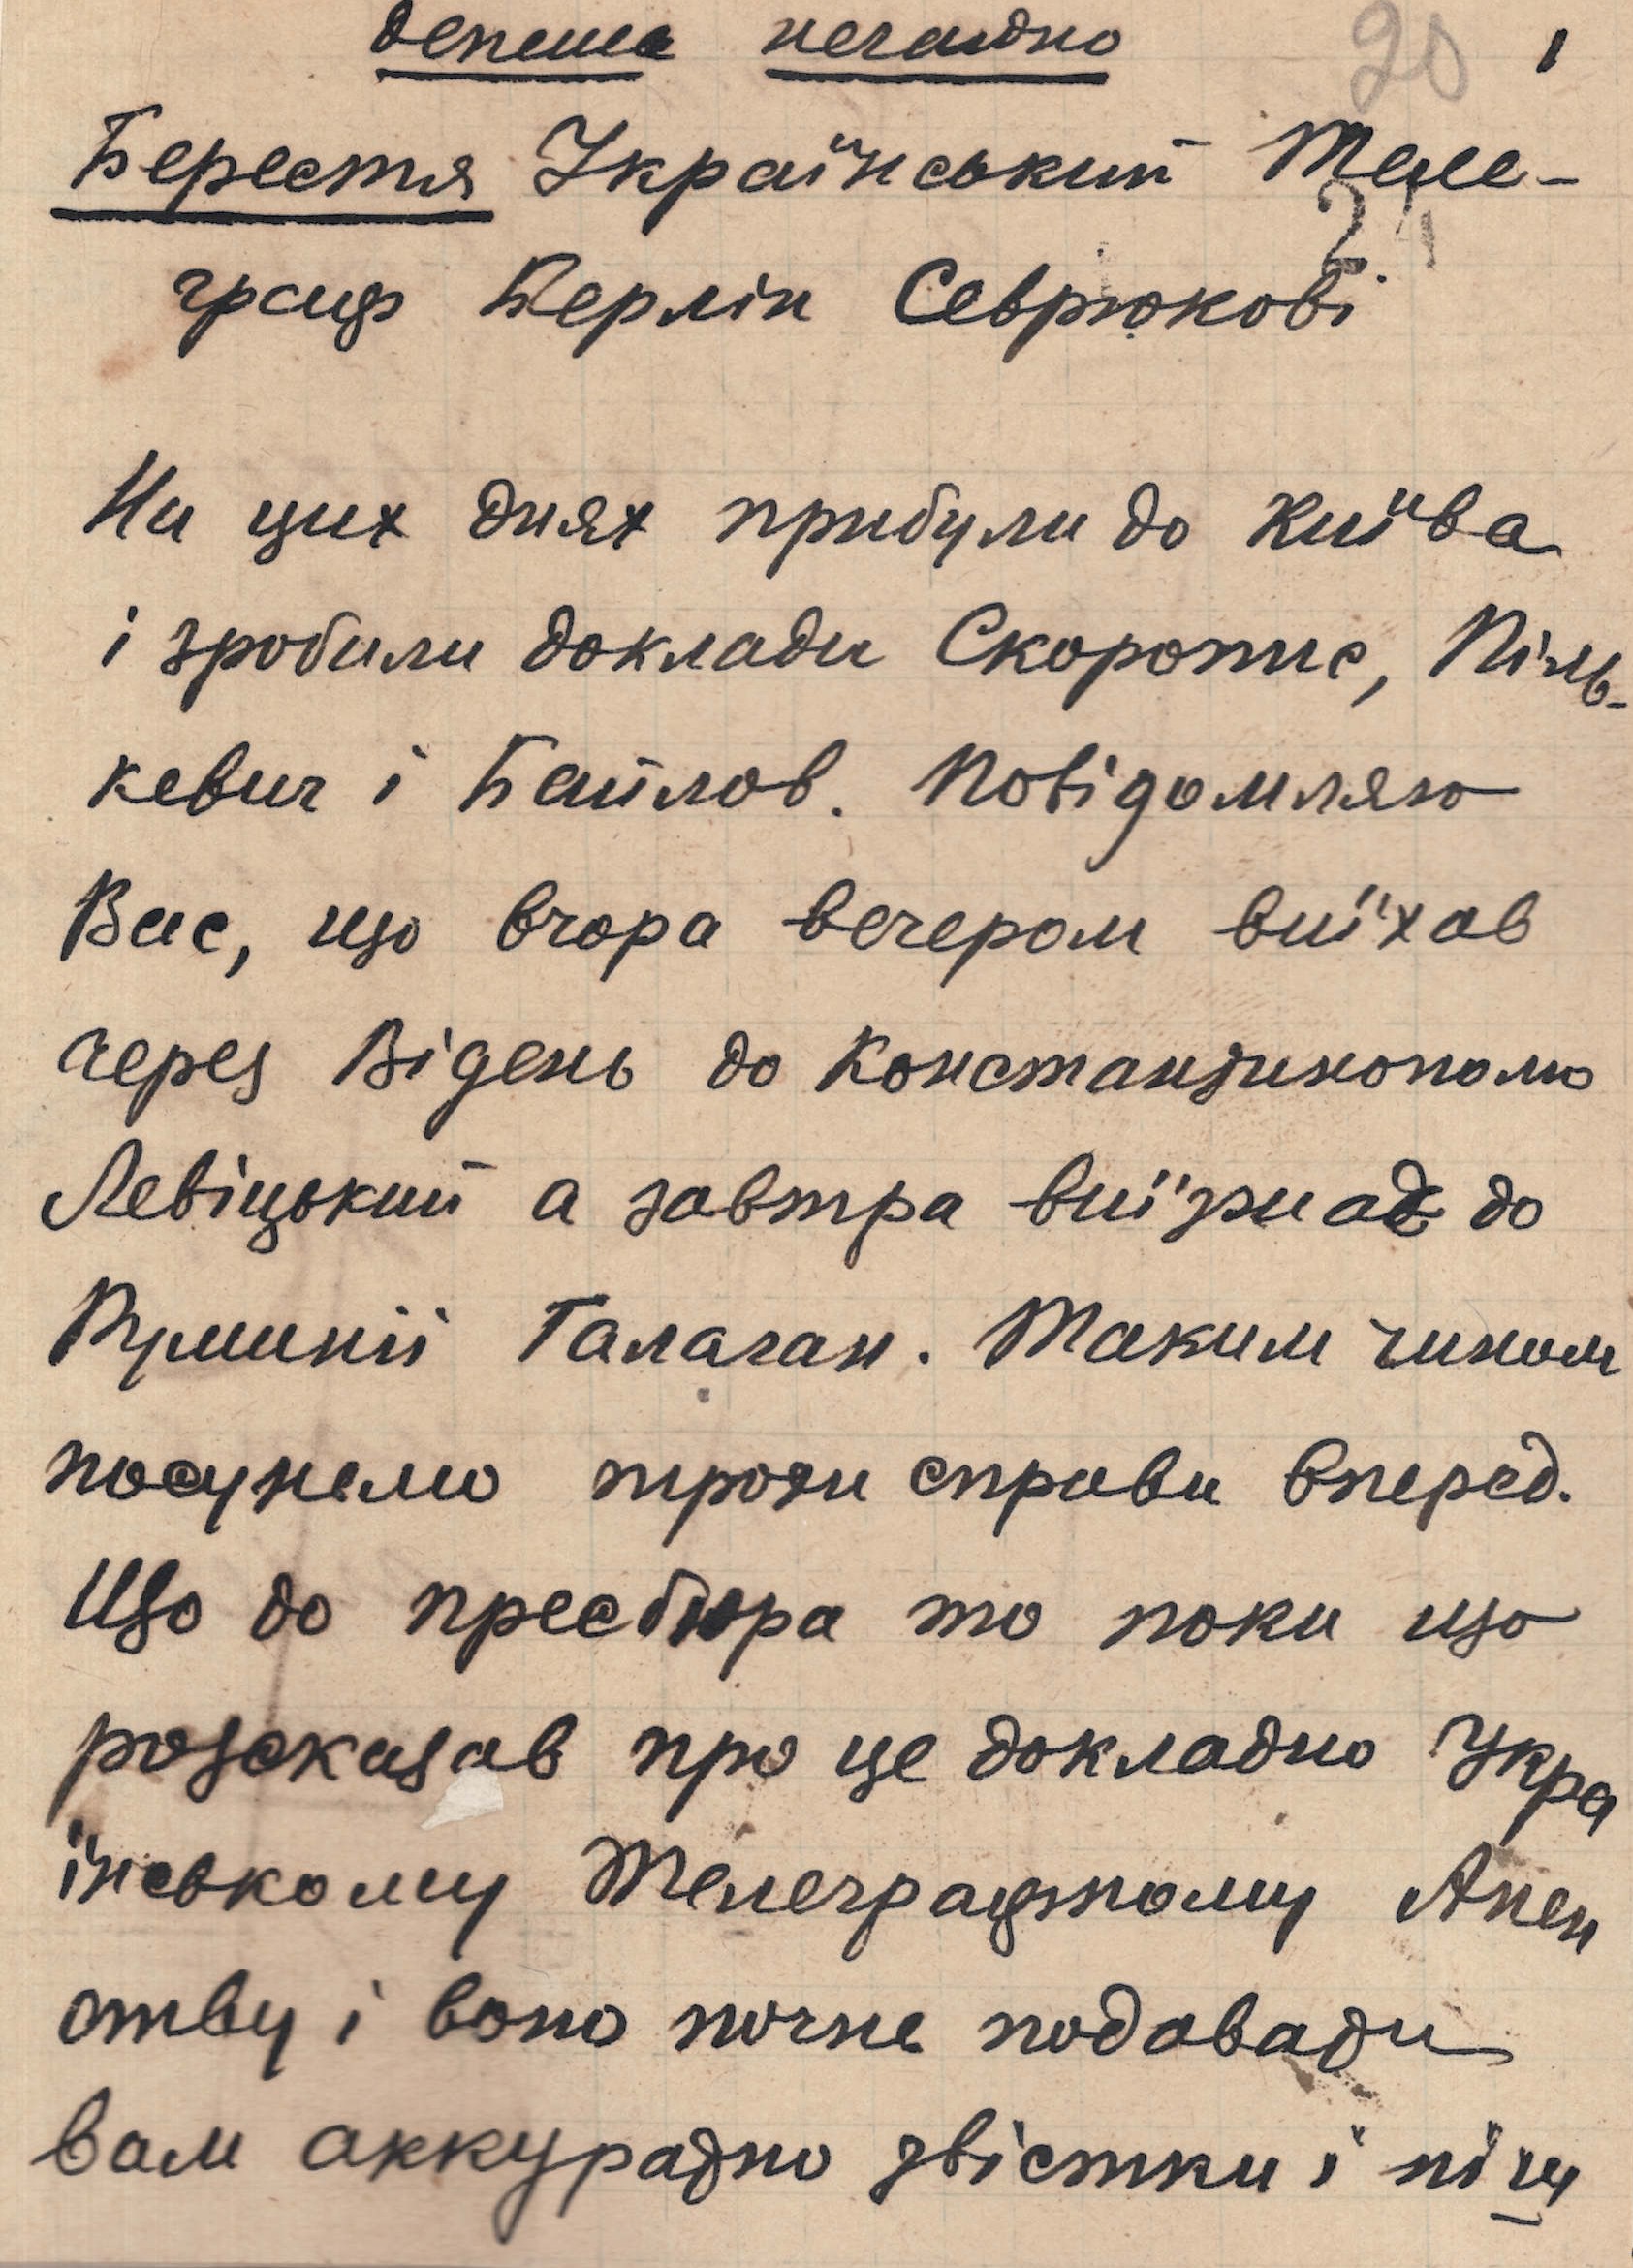 депеша негайно 20 1
Берестя Український Теле-
24
граф Берлін Севрюкові
На цих днях прибули до Київа
і зробили доклади Скоропис, Піль-
кевич і Байлов. Повідомляю
Вас, що вчора вечером виїхав
через Відень до Константинополю
Левіцький а завтра виїзжає до
Руминії Галаган. Таким чином
посунемо трохи справи вперед.
Що до пресбюра то поки що
розсказав про це докладно Укра
їнському Телеграфному Аген
ству і воно почне подавати
вам аккуратно звістки і